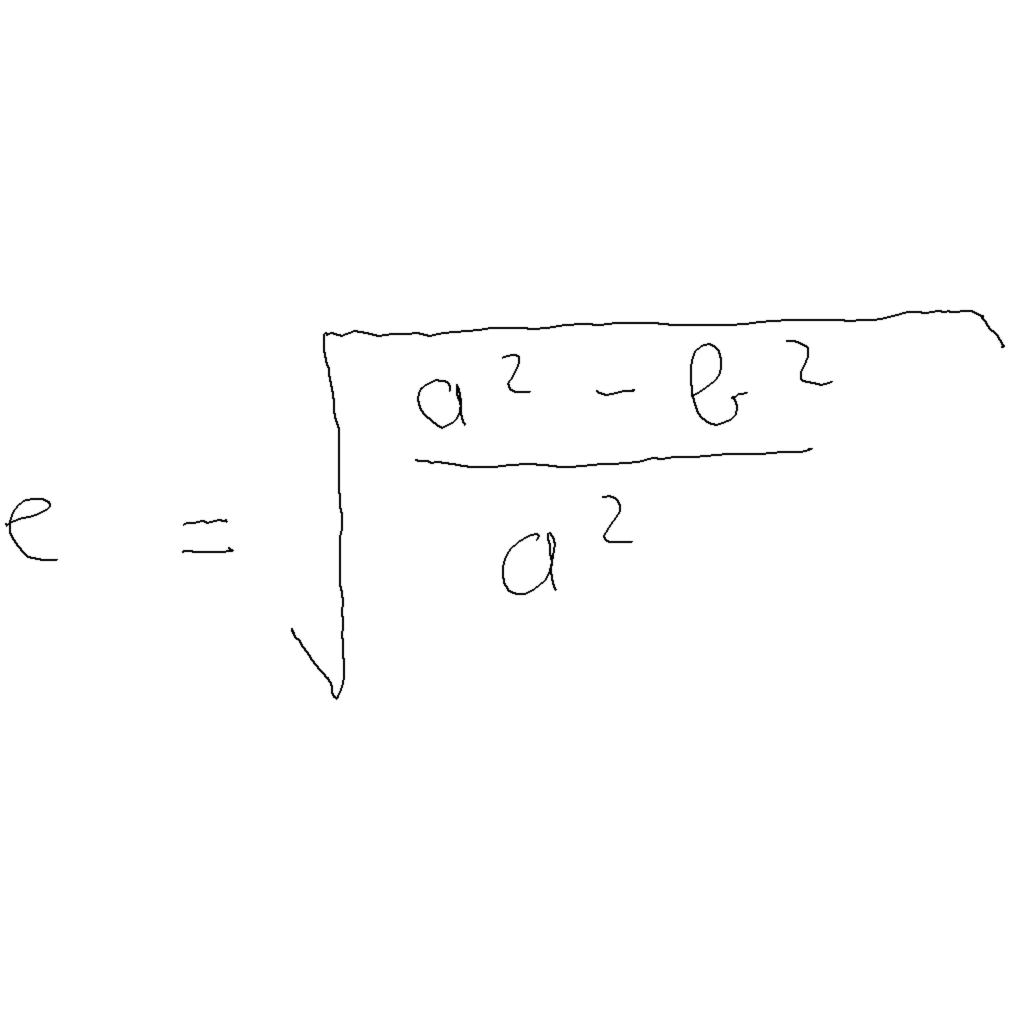 e = \sqrt{\frac{a^2 - b^2}{a^2}}